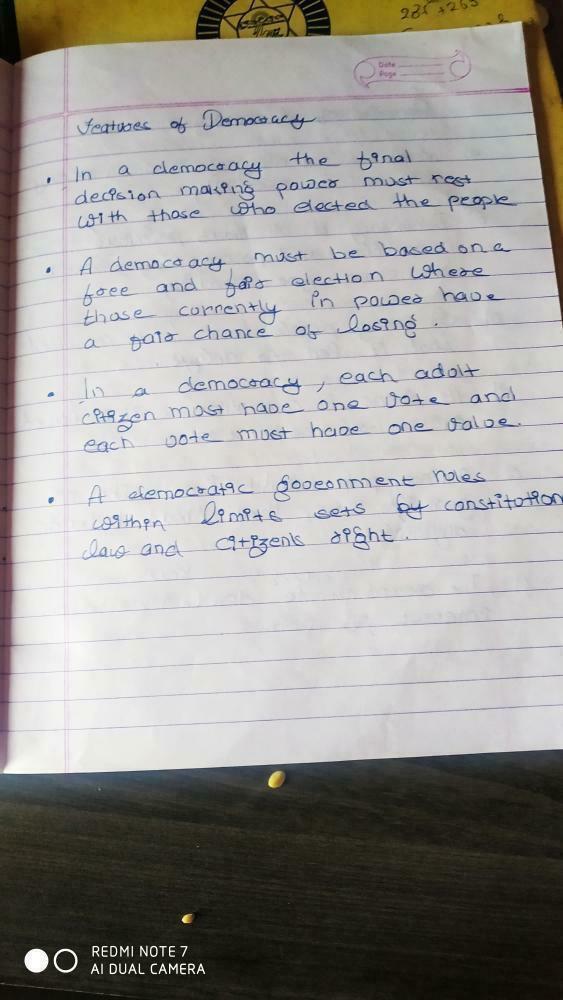 285 + 265
Date
Page
Features of Democracy
• In a democracy the final
decision making power must rest
with those who elected the people
• A democracy must be based on a
free and fair election where
those currently in power have
a fair chance of losing.
• In a democracy, each adult
citizen must have one vote and
each vote must have one value.
• A democratic government rules
within limits sets by constitution
law and citizens right.
REDMI NOTE 7
AI DUAL CAMERA